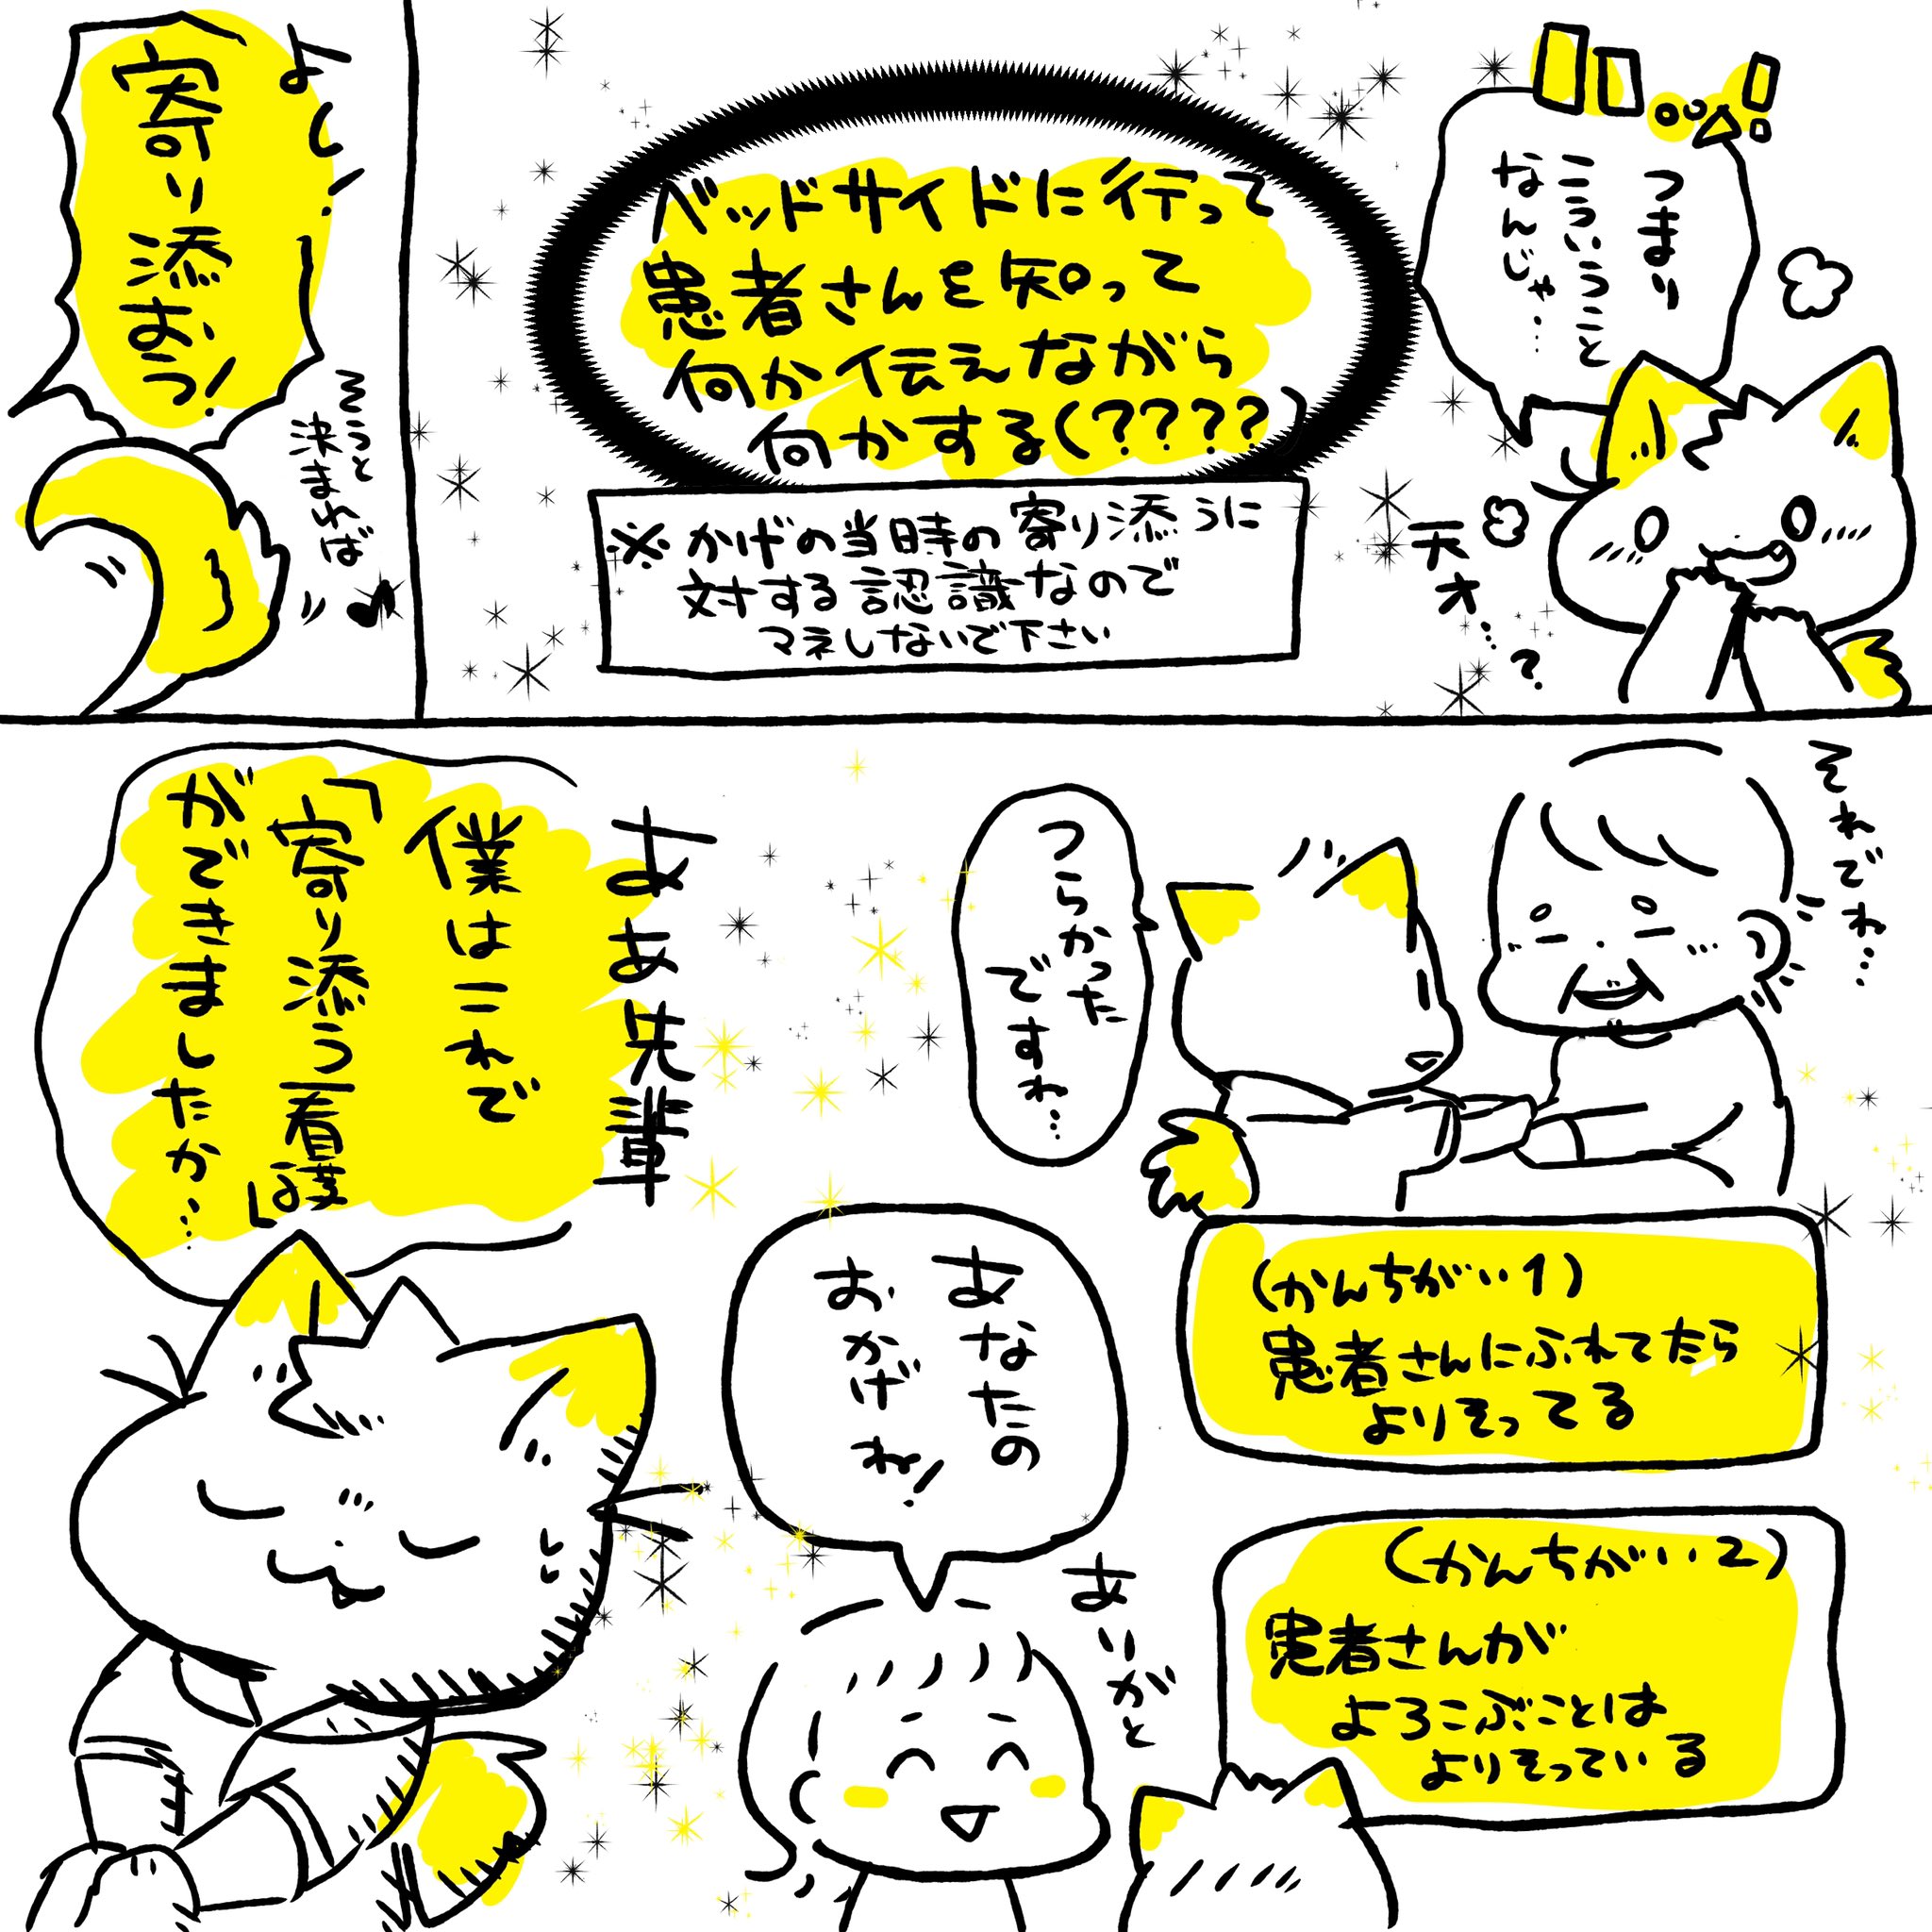 つまり
こういうこと
なんじゃ…
天才…?
ベッドサイドに行って
患者さんを知って
何か伝えながら
何かする(????)
※かげの当時の寄り添うに
対する認識なので
マネしないで下さい
よし!
寄り添おう!
そうと
決まれば
それでね…
つらかった
ですね…
(かんちがい1)
患者さんにふれてたら
よりそってる
(かんちがい2)
患者さんが
よろこぶことは
よりそっている
あなたの
おかげね!
ありがと
ああ先輩
僕はこれで
「寄り添う看護」
ができましたか…